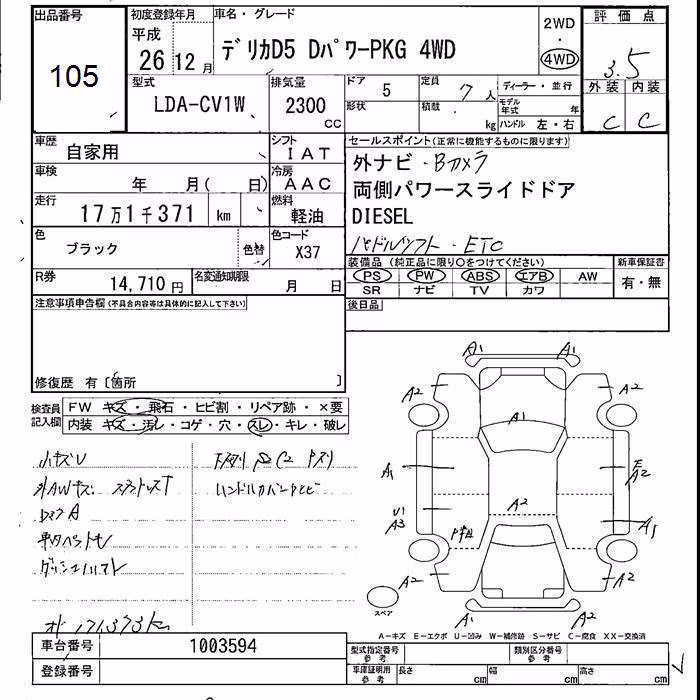 出品番号
105
初度登録年月
平成
26 12月
車名・グレード
デリカD5 DパワーPKG 4WD
2WD
・
4WD
評価点
3.5
外装 内装
C C
型式
LDA-CV1W
排気量
2300
cc
ドア
5
定員
7人
形状
積載
kg
ディーラー・並行
モデル年式 年
ハンドル 左・右
車歴
自家用
シフト
IAT
車検
年 月( 日)
冷房
AAC
走行
17万1千371 km
燃料
軽油
色
ブラック
色替
色コード
X37
R券
14,710円
名変通知期限
月 日
セールスポイント(正常に機能するものに限ります)
外ナビ・Bカメラ
両側パワースライドドア
DIESEL
パドルシフト・ETC
装備品 (純正品に限り○をつけてください)
PS PW ABS エアB AW
SR ナビ TV カワ
新車保証書
有・無
後日品
注意事項申告欄(不具合内容等は具体的に記入して下さい)
修復歴 有〔箇所 〕
検査員記入欄
FW キズ・飛石・ヒビ割・リペア跡・×要
内装 キズ・汚レ・コゲ・穴・スレ・キレ・破レ
小キズU
ハンドルカバー
メ 171,373km
A1 A1
A2 A2
A1
A1
E
A2
A2
U1
A3
A1
A2 A2
A2 A2
スペア
A-キズ E-エクボ U-凹み W-補修跡 S-サビ C-腐食 XX-交換済
車台番号
1003594
登録番号
型式指定番号
参考
類別区分番号
参考
車庫証明用
参考
長さ cm
幅 cm
高さ cm